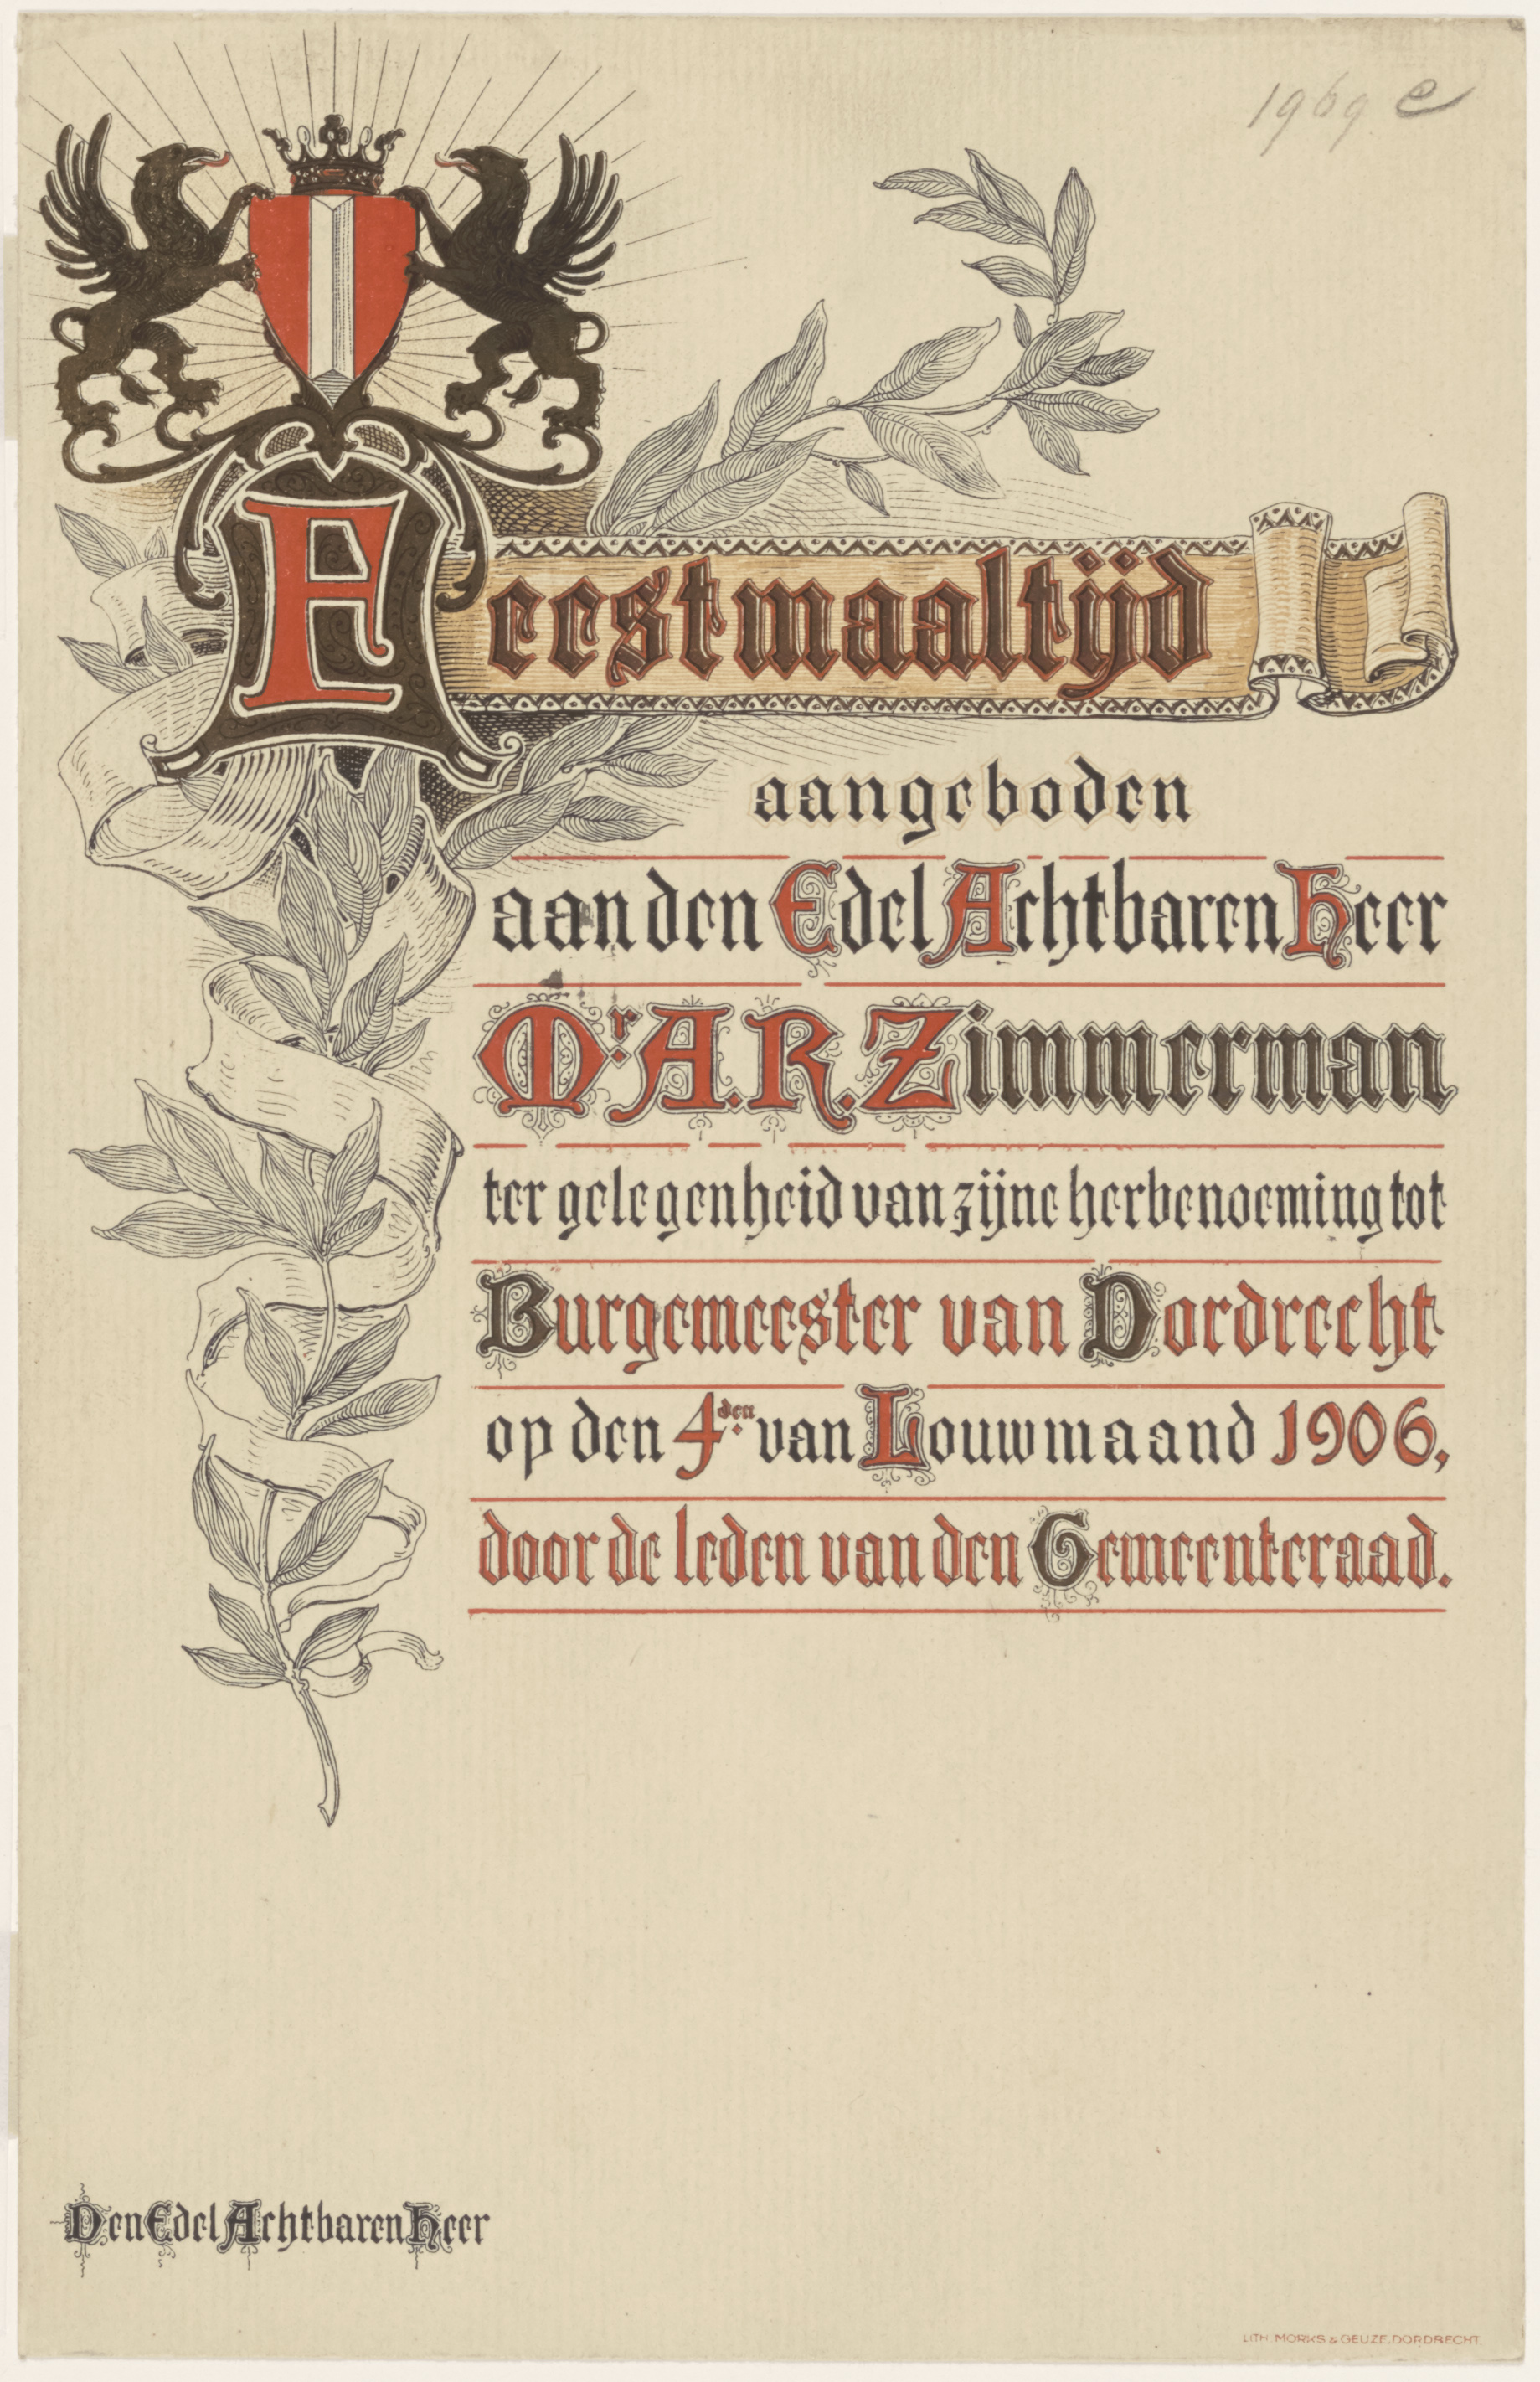 1969 e
Feestmaaltijd
aangeboden
aan den Edel Achtbaren Heer
Mr. A. R. Zimmerman
ter gelegenheid van zijne herbenoeming tot
Burgemeester van Dordrecht
op den 4den van Louwmaand 1906,
door de leden van den Gemeenteraad.
Den Edel Achtbaren Heer
LITH. MORKS & GEUZE, DORDRECHT.